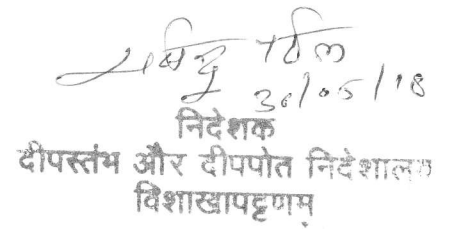 30/05/18
निदेशक
दीपस्तंभ और दीपपोत निदेशालय
विशाखापट्टणम्